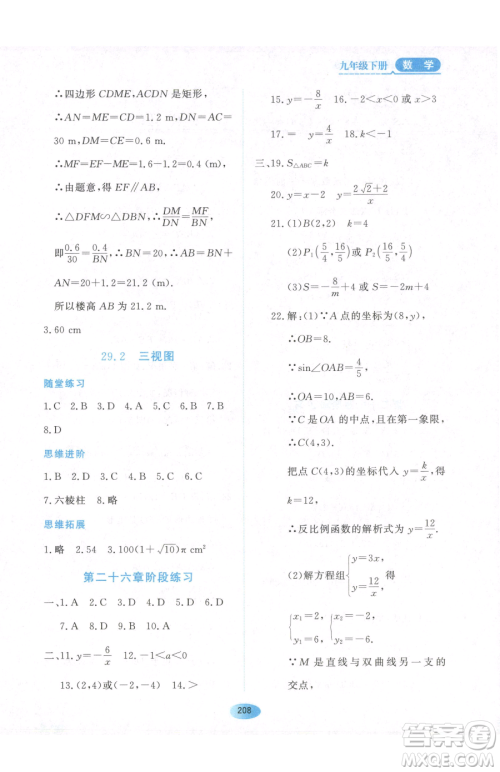 九年级下册 数学
∴四边形 CDME,ACDN 是矩形.
∴AN=ME=1.2 m,DN=AC=
30 m,DM=CE=0.6 m.
∴MF=EF-ME=1.6-1.2=0.4(m).
由题意,得 EF∥AB,
∴△DFM∽△DBN,∴DM/DN=MF/BN.
即 0.6/30=0.4/BN,∴BN=20.
∴AN=20+1.2=21.2(m).
所以楼高为 21.2 m.
3.60 cm
29.2 三视图
随堂练习
1.C 2.B 3.A 4.C 5.D 6.D 7.B
8.D
思维进阶
1.B 2.C 3.D 4.A 5.A 6.B
7.六棱柱 8.略
思维拓展
1.略 2.54 3.100(1+√10)π cm²
第二十六章阶段练习
一、1.A 2.D 3.D 4.A 5.D 6.B
7.A 8.D 9.D 10.A
二、11.y=-6/x 12.-1<a<1
13.(2,4)或(4,2) 14.减少 >
15.y=-8/x 16.-2<x<0 或 x>3
17.= y=4/x 18.=
三、19.S△ABC=k
20.y=x-2 y=(2√2+2)/x
21.(1)B(2,2) k=4
(2)P₁(4/5,16/5)或 P₂(16/5,5/4)
(3)S=-8/m+4 m>4
22.解:(1)∵A 点的坐标为(8,y),
∴OB=8.
∵sin∠OAB=4/5,
∴OA=10,AB=6.
∵C 是 OA 的中点,且在第一象限,
∴C(4,3).
把点 C(4,3)的坐标代入 y=k/x,
得 k=12.
∴反比例函数的解析式为 y=12/x.
(2)解方程组{y=3x, y=12/x,
得{x₁=2 y₁=6 {x₂=-2 y₂=-6.
∵M 是直线与双曲线另一支的
交点,
208
答案圈
MXQE.COM